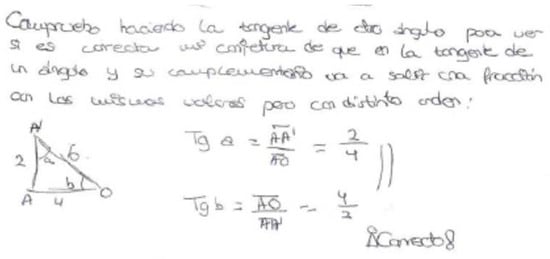 Compruebo haciendo la tangente de otro ángulo para ver
si es correcta mi conjetura de que en la tangente de
un ángulo y su complementario va a salir una fracción
con los mismos valores pero con distinto orden:
A'
2 a 6
b
A 4 O
Tg a = AA' / AO = 2/4
Tg b = AO / AA' = 4/2
¡Correcto!